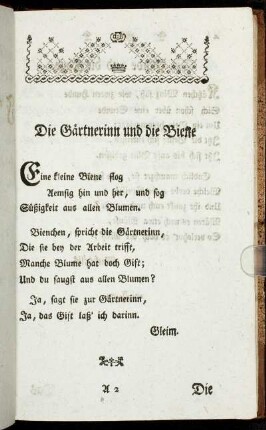 Die Gärtnerinn und die Biene
Eine kleine Biene flog
Aemsig hin und her, und sog
Süßigkeit aus allen Blumen.
Bienchen, spricht die Gärtnerinn,
Die sie bey der Arbeit trifft,
Manche Blume hat doch Gift;
Und du saugst aus allen Blumen?
Ja, sagt sie zur Gärtnerinn,
Ja, das Gift laß' ich darinn.
Gleim.
A 2 Die